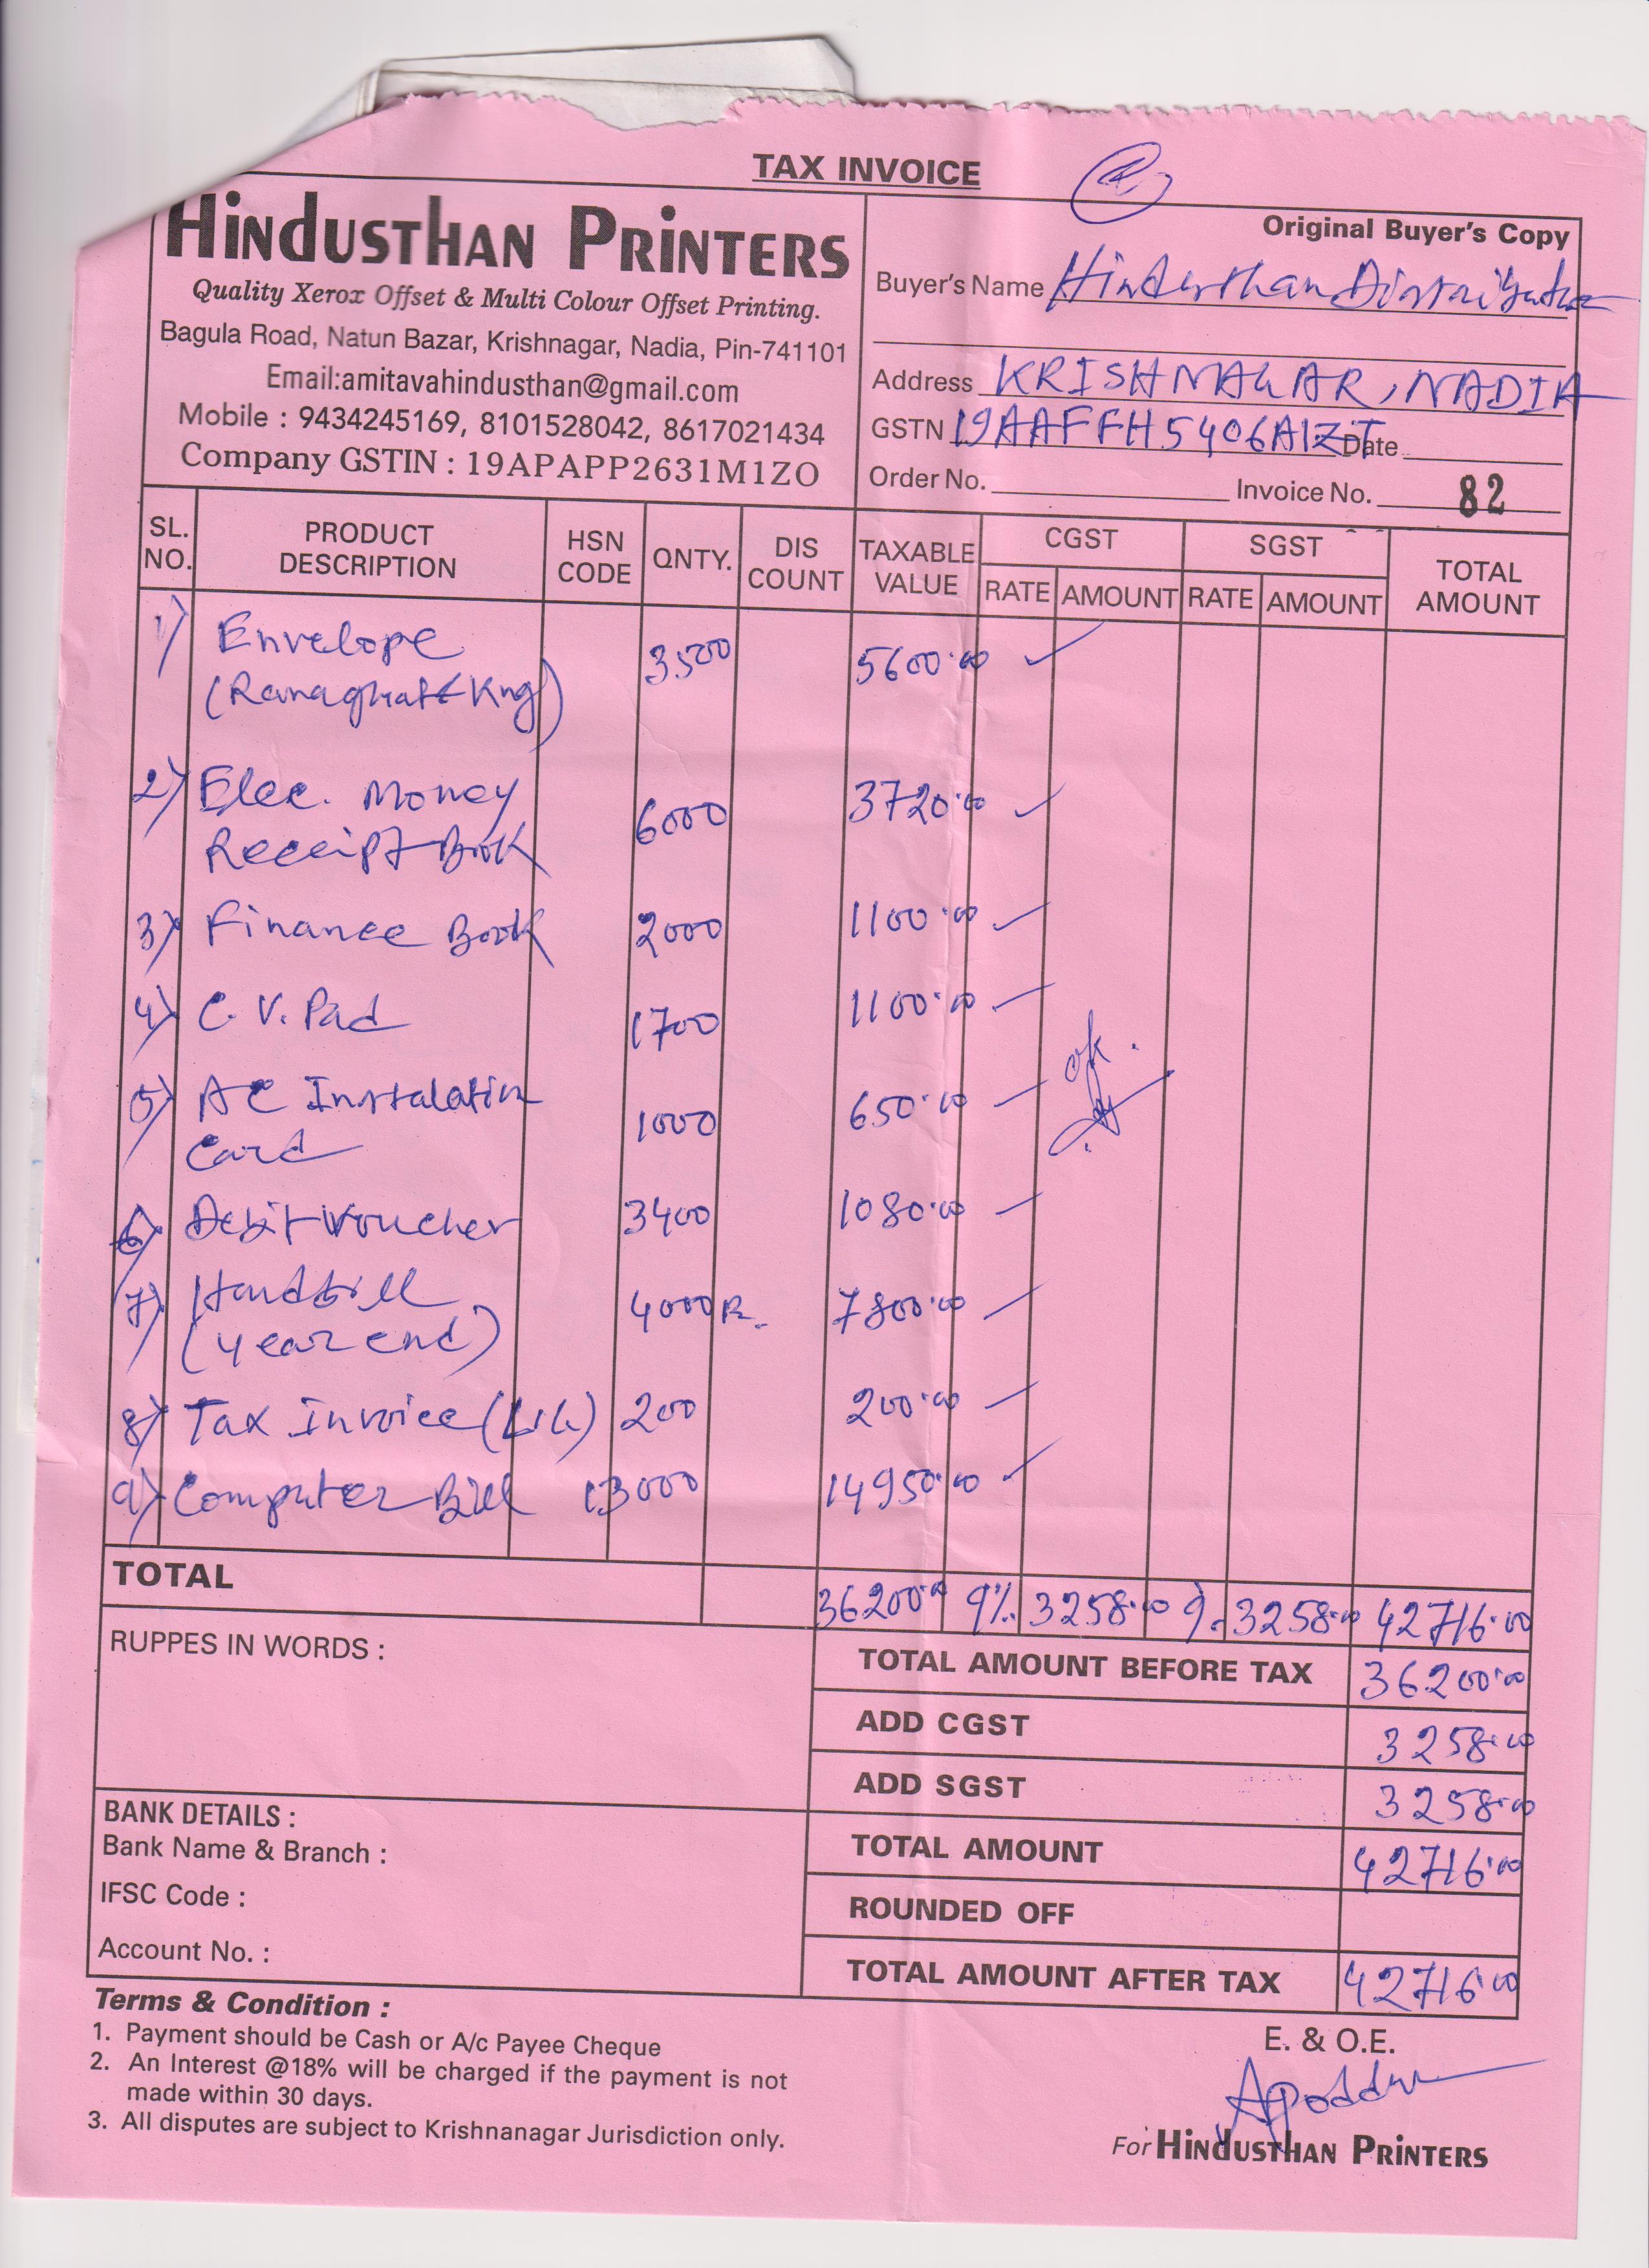 TAX INVOICE
HINDUSTHAN PRINTERS
Quality Xerox Offset & Multi Colour Offset Printing.
Bagula Road, Natun Bazar, Krishnagar, Nadia, Pin-741101
Email:amitavahindusthan@gmail.com
Mobile : 9434245169, 8101528042, 8617021434
Company GSTIN : 19APAPP2631M1ZO
Original Buyer's Copy
Buyer's Name Hindusthan Distributor
Address KRISHNAGAR, NADIA
GSTN 19AAFFH5406A1ZT Date
Order No. Invoice No. 82
SL. NO. PRODUCT DESCRIPTION HSN CODE QNTY. DIS COUNT TAXABLE VALUE CGST SGST TOTAL AMOUNT
RATE AMOUNT RATE AMOUNT
1) Envelope 3500 5600.00
(Ranaghat & Kng)
2) Elec. Money 6000 3720.00
Receipt Book
3) Finance Book 2000 1100.00
4) C. V. Pad 1700 1100.00
ok.
5) AC Instalation 1000 650.00
Card
6) Debit Voucher 3400 1080.00
7) Handbill 4000 7800.00
(year end)
8) Tax Invoice 200 200.00
9) Computer Bill 13000 14950.00
TOTAL 36200.00 9% 3258.00 9. 3258.00 42716.00
RUPPES IN WORDS :
TOTAL AMOUNT BEFORE TAX 36200.00
ADD CGST 3258.00
ADD SGST 3258.00
BANK DETAILS :
Bank Name & Branch :
TOTAL AMOUNT 42716.00
IFSC Code :
ROUNDED OFF
Account No. :
TOTAL AMOUNT AFTER TAX 42716.00
Terms & Condition :
1. Payment should be Cash or A/c Payee Cheque
2. An Interest @18% will be charged if the payment is not
made within 30 days.
3. All disputes are subject to Krishnanagar Jurisdiction only.
E. & O.E.
Apoddar
For HINDUSTHAN PRINTERS